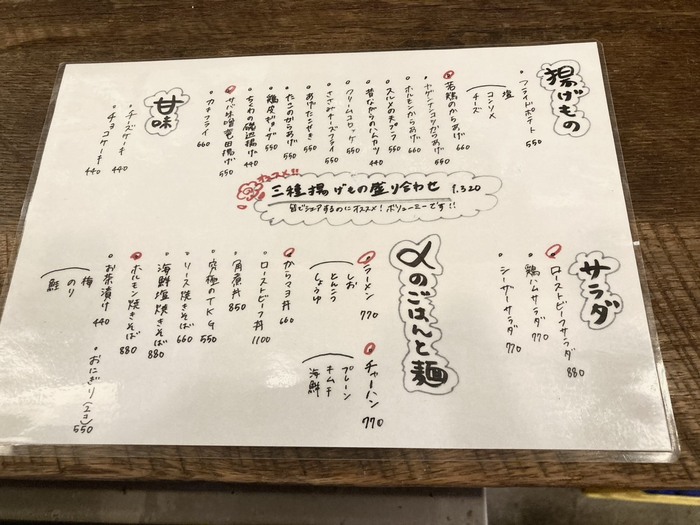 揚げもの
フライドポテト 550
塩
コンソメ
チーズ
若鶏のからあげ 660
ナゲナンコツからあげ 550
ホルモンからあげ 660
スルメの天プラ 550
昔ながらのハムカツ 440
クリームコロッケ 550
ささみチーズフライ 550
あげたこやき 550
たこのからあげ 550
鶏皮ギョーザ 550
ちくわの磯辺揚げ 440
サバ味噌竜田揚げ 550
カキフライ 660
甘味
チーズケーキ 440
チョコケーキ 440
オススメ!!
三種揚げもの盛り合わせ 1.320
皆でシェアするのにオススメ!ボリューミーです!!
サラダ
ローストビーフサラダ 880
鶏ハムサラダ 770
シーザーサラダ 770
〆のごはんと麺
ラーメン 770
しお
とんこつ
しょうゆ
チャーハン 770
プレーン
キムチ
海鮮
からマヨ丼 660
ローストビーフ丼 1100
角煮丼 850
究極のTKG 550
ソース焼きそば 660
海鮮塩焼きそば 880
ホルモン焼きそば 880
お茶漬け 440
梅
のり
鮭
おにぎり(2コ) 550